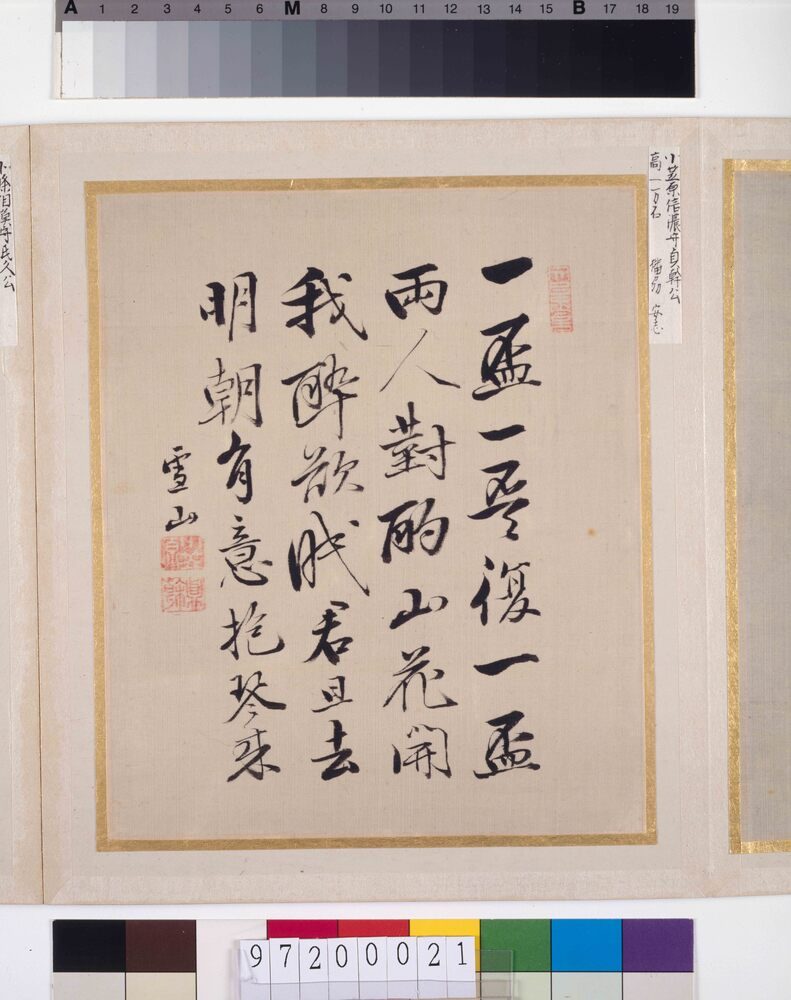 A 1 2 3 4 5 6 M 8 9 10 11 12 13 14 15 B 17 18 19
小笠原信濃守貞幹公
高一万石
一盃一盃復一盃
兩人對酌山花開
我醉欲眠君且去
明朝有意抱琴来
雪山
97200021